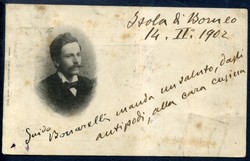 Isola di Borneo
14. II. 1902
Guido Bonarelli manda un saluto, dagli
antipodi, alla cara cugina